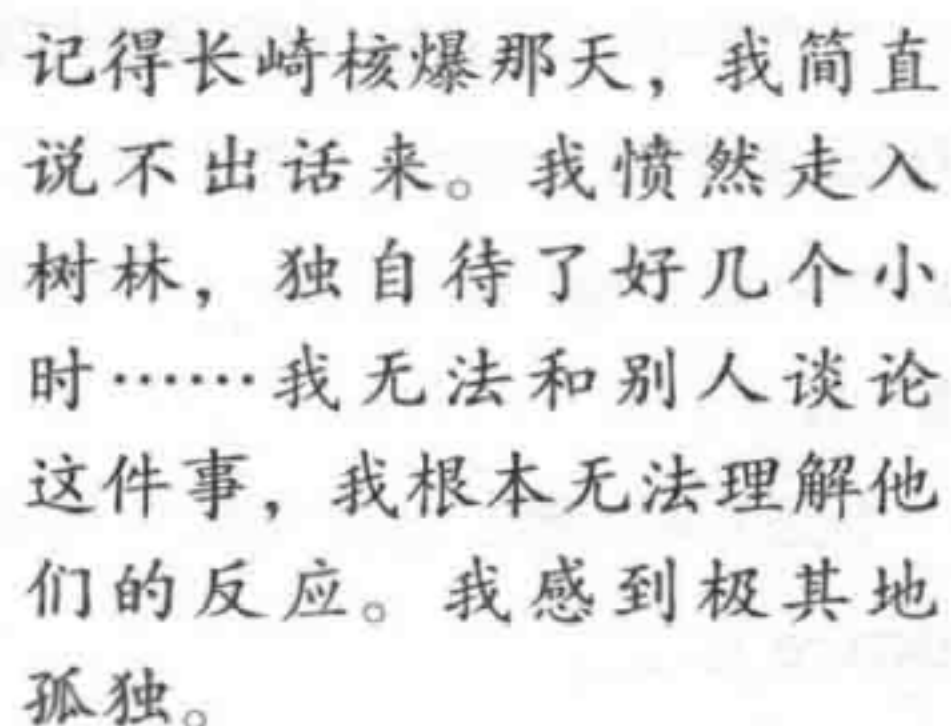 记得长崎核爆那天，我简直
说不出话来。我愤然走入
树林，独自待了好几个小
时……我无法和别人谈论
这件事，我根本无法理解他
们的反应。我感到极其地
孤独。